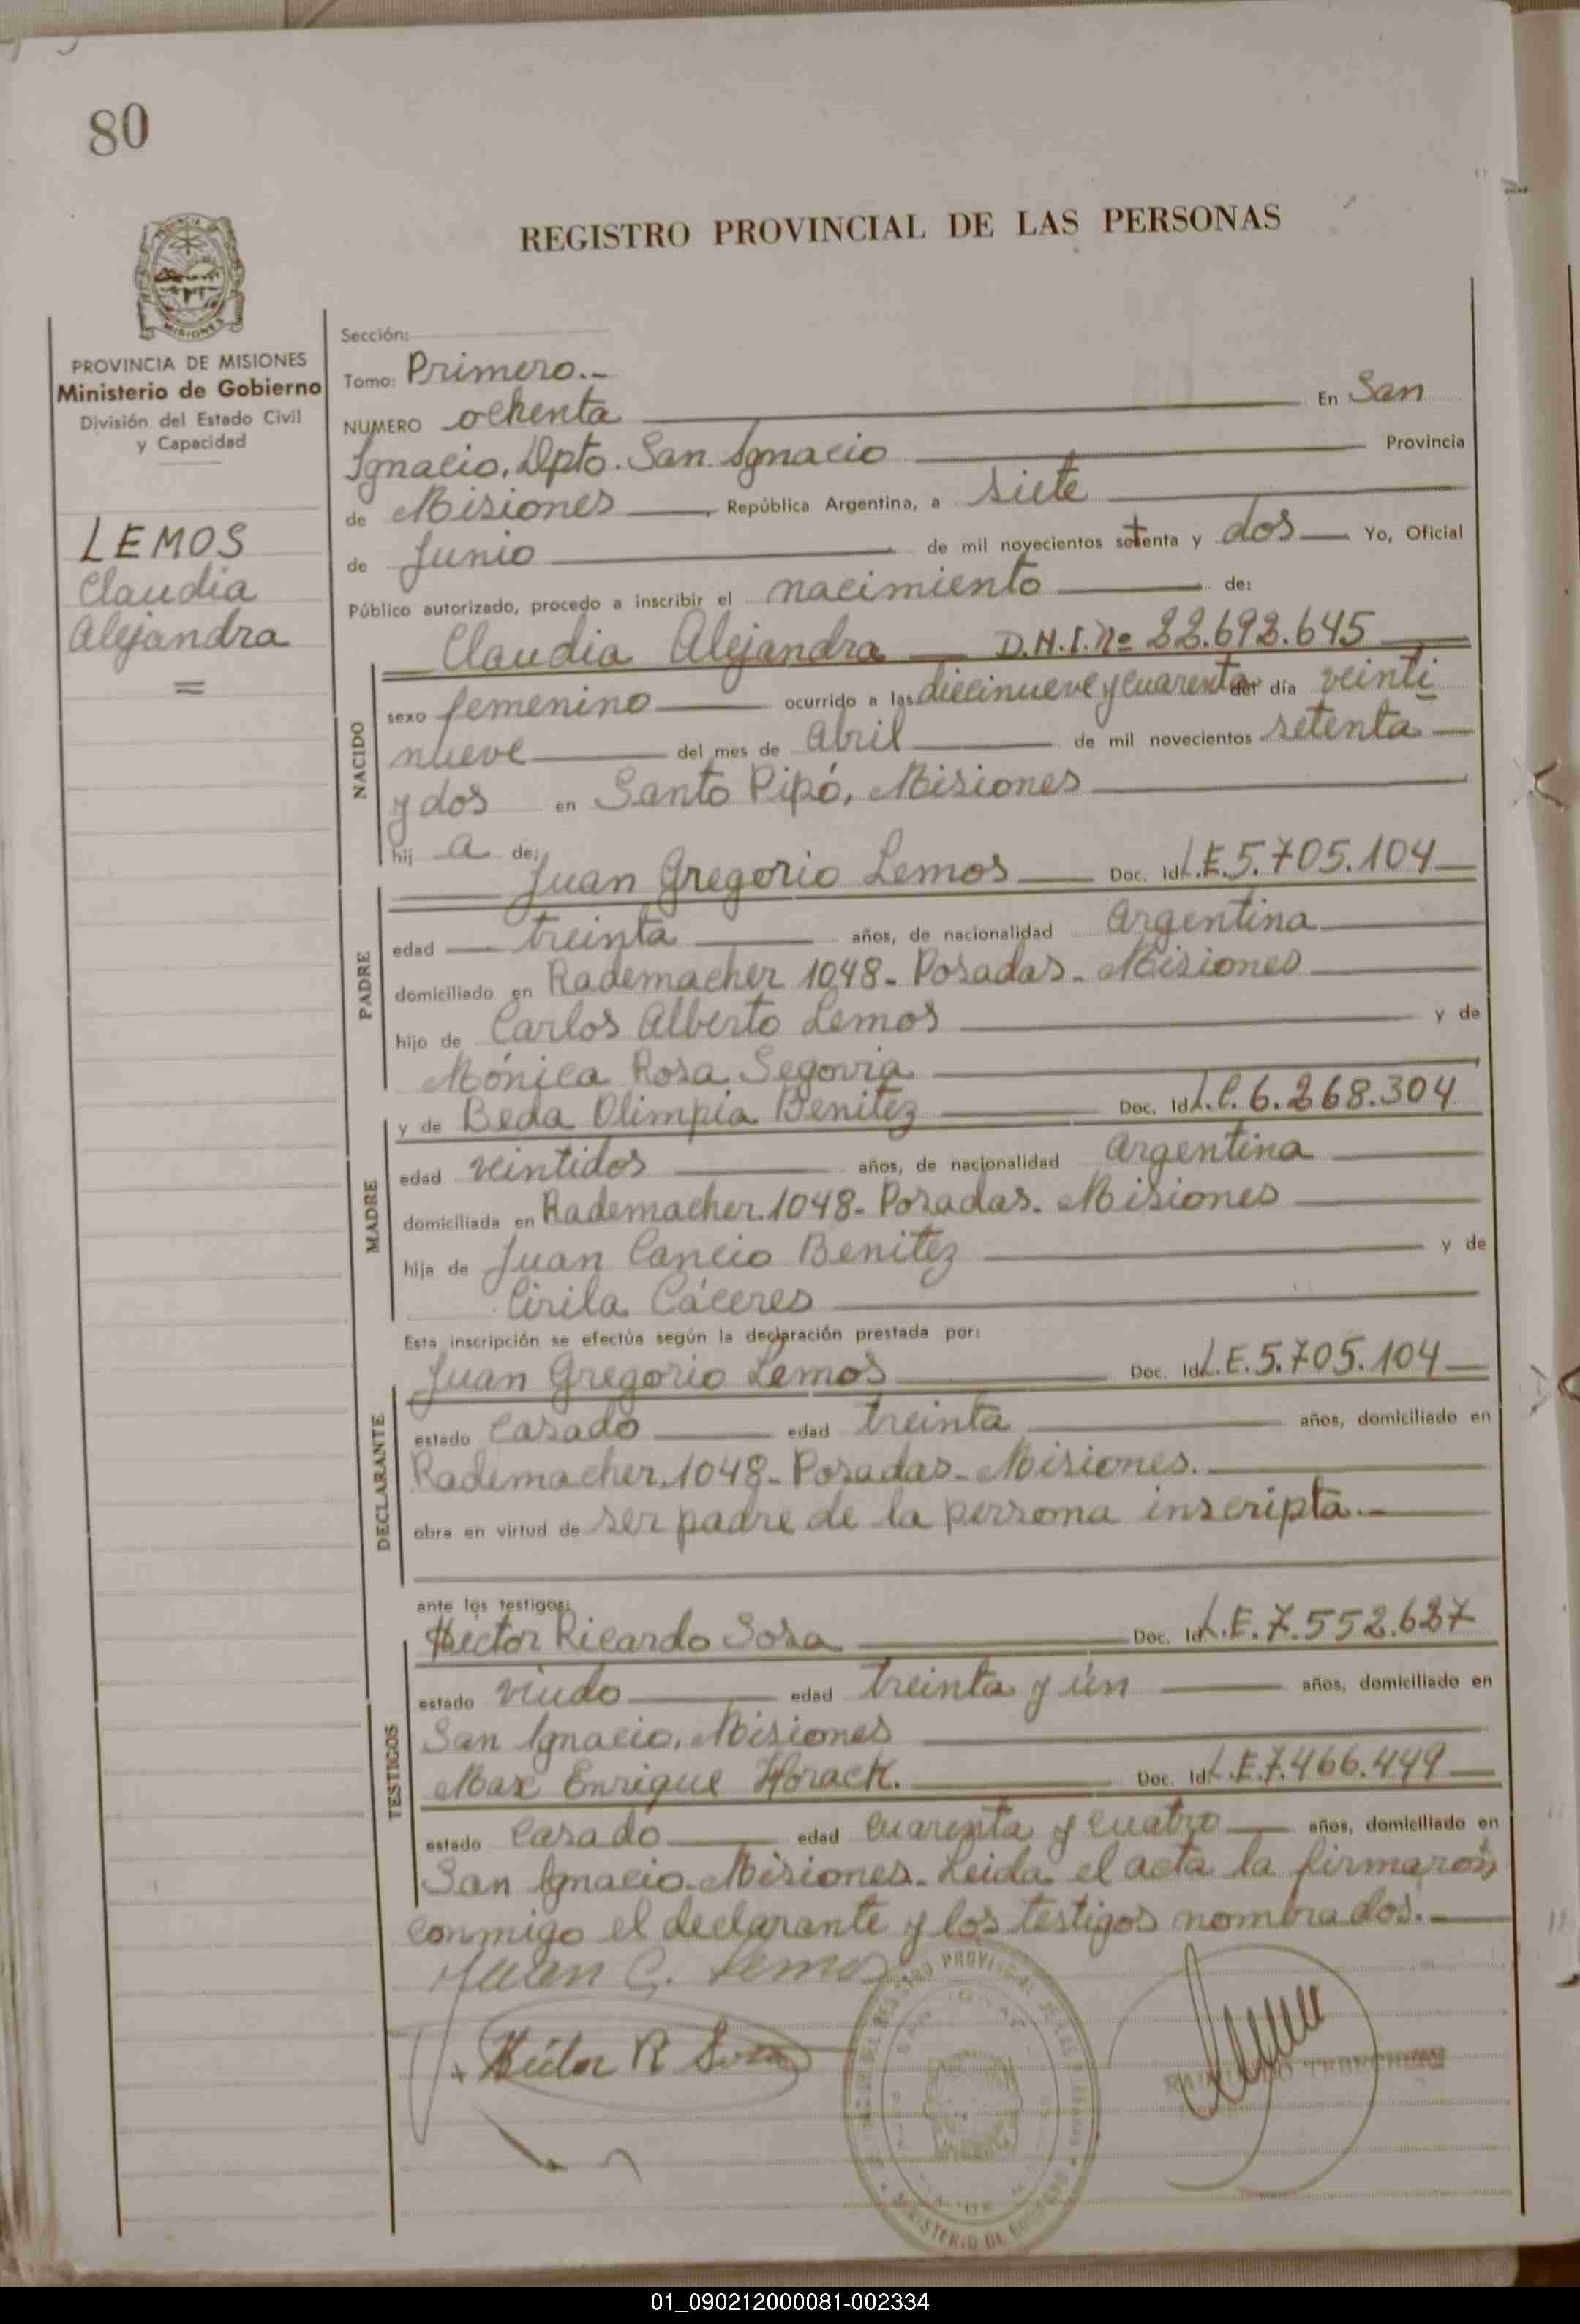 80
REGISTRO PROVINCIAL DE LAS PERSONAS
MISIONES
PROVINCIA DE MISIONES
Ministerio de Gobierno
División del Estado Civil
y Capacidad
LEMOS
Claudia
Alejandra
=
Sección:
Tomo: Primero.-
NUMERO ochenta En San
Ignacio, Dpto. San Ignacio Provincia
de Misiones, República Argentina, a siete
de Junio de mil novecientos setenta y dos Yo, Oficial
Público autorizado, procedo a inscribir el nacimiento de:
Claudia Alejandra D.N.I. Nº 22.692.645
NACIDO
sexo femenino ocurrido a las diecinueve y cuarenta del día veinti
nueve del mes de Abril de mil novecientos setenta
y dos en Santo Pipó, Misiones
hij a de:
Juan Gregorio Lemos Doc. Id. L.E. 5.705.104
PADRE
edad treinta años, de nacionalidad Argentina
domiciliado en Rademacher 1048- Posadas- Misiones
hijo de Carlos Alberto Lemos y de
Mónica Rosa Segovia
y de Beda Olimpia Benitez Doc. Id. L.C. 6.268.304
MADRE
edad veintidos años, de nacionalidad Argentina
domiciliada en Rademacher 1048- Posadas- Misiones
hija de Juan Cancio Benitez y de
Cirila Cáceres
Esta inscripción se efectúa según la declaración prestada por:
Juan Gregorio Lemos Doc. Id. L.E. 5.705.104
DECLARANTE
estado Casado edad treinta años, domiciliado en
Rademacher 1048- Posadas- Misiones.
obra en virtud de ser padre de la persona inscripta.-
ante los testigos:
Hector Ricardo Sosa Doc. Id. L.E. 7.552.687
TESTIGOS
estado viudo edad treinta y ún años, domiciliado en
San Ignacio, Misiones
Max Enrique Horack. Doc. Id. L.E. 7.466.449
estado Casado edad cuarenta y cuatro años, domiciliado en
San Ignacio- Misiones- Leida el acta la firmaron
conmigo el declarante y los testigos nombrados.-
Juan G. Lemos
Héctor R Sosa
01_090212000081-002334